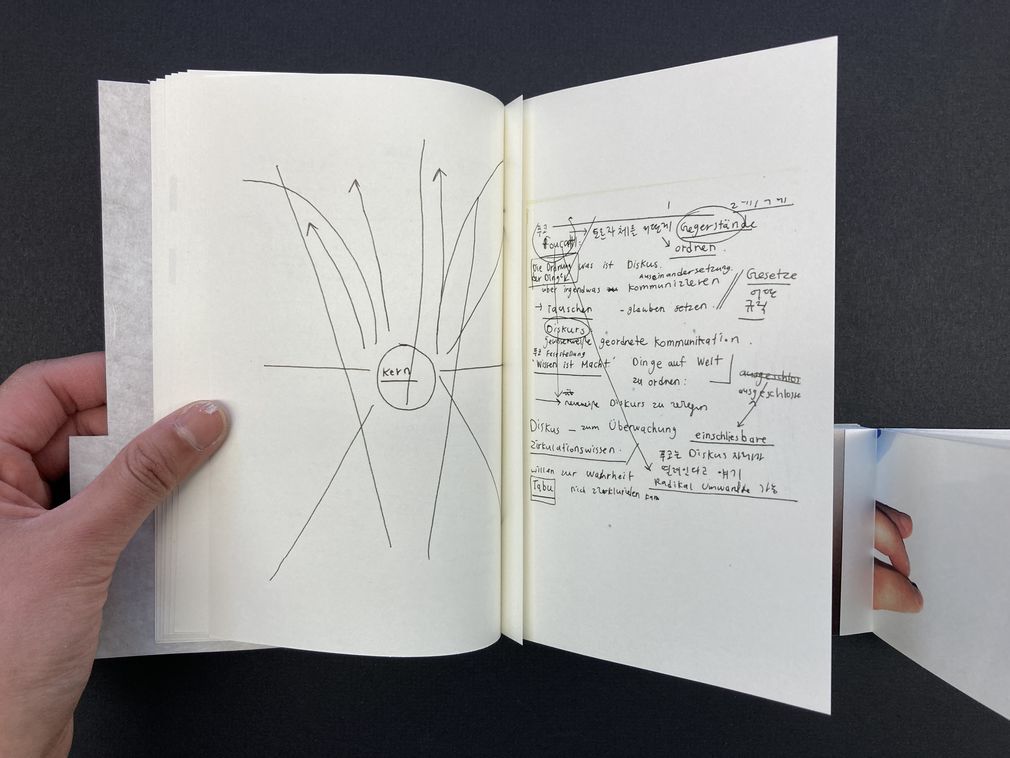 Kern
푸코 → 토론 자체를 어떻게 Gegerstände
foucault: ordnen.
Die Ordnung der Dinge was ist Diskus.
auseinandersetzung.
über irgendwas kommunizieren
Gesetze
어떤
규칙
→ Tauschen - glauben setzen.
Diskurs
geordnete Kommunitcation.
푸코 Feststellung
"Wissen ist Macht" Dinge auf Welt
zu ordnen:
ausgeschlos
ausgeschlosse
Diskurs zu
Diskus - zum Überwachung einschliesbare
Zirkulationswissen.
푸코는 Diskus 자체가
얘기
willen zur Wahrheit
Radikal umwandte 가능
Tabu